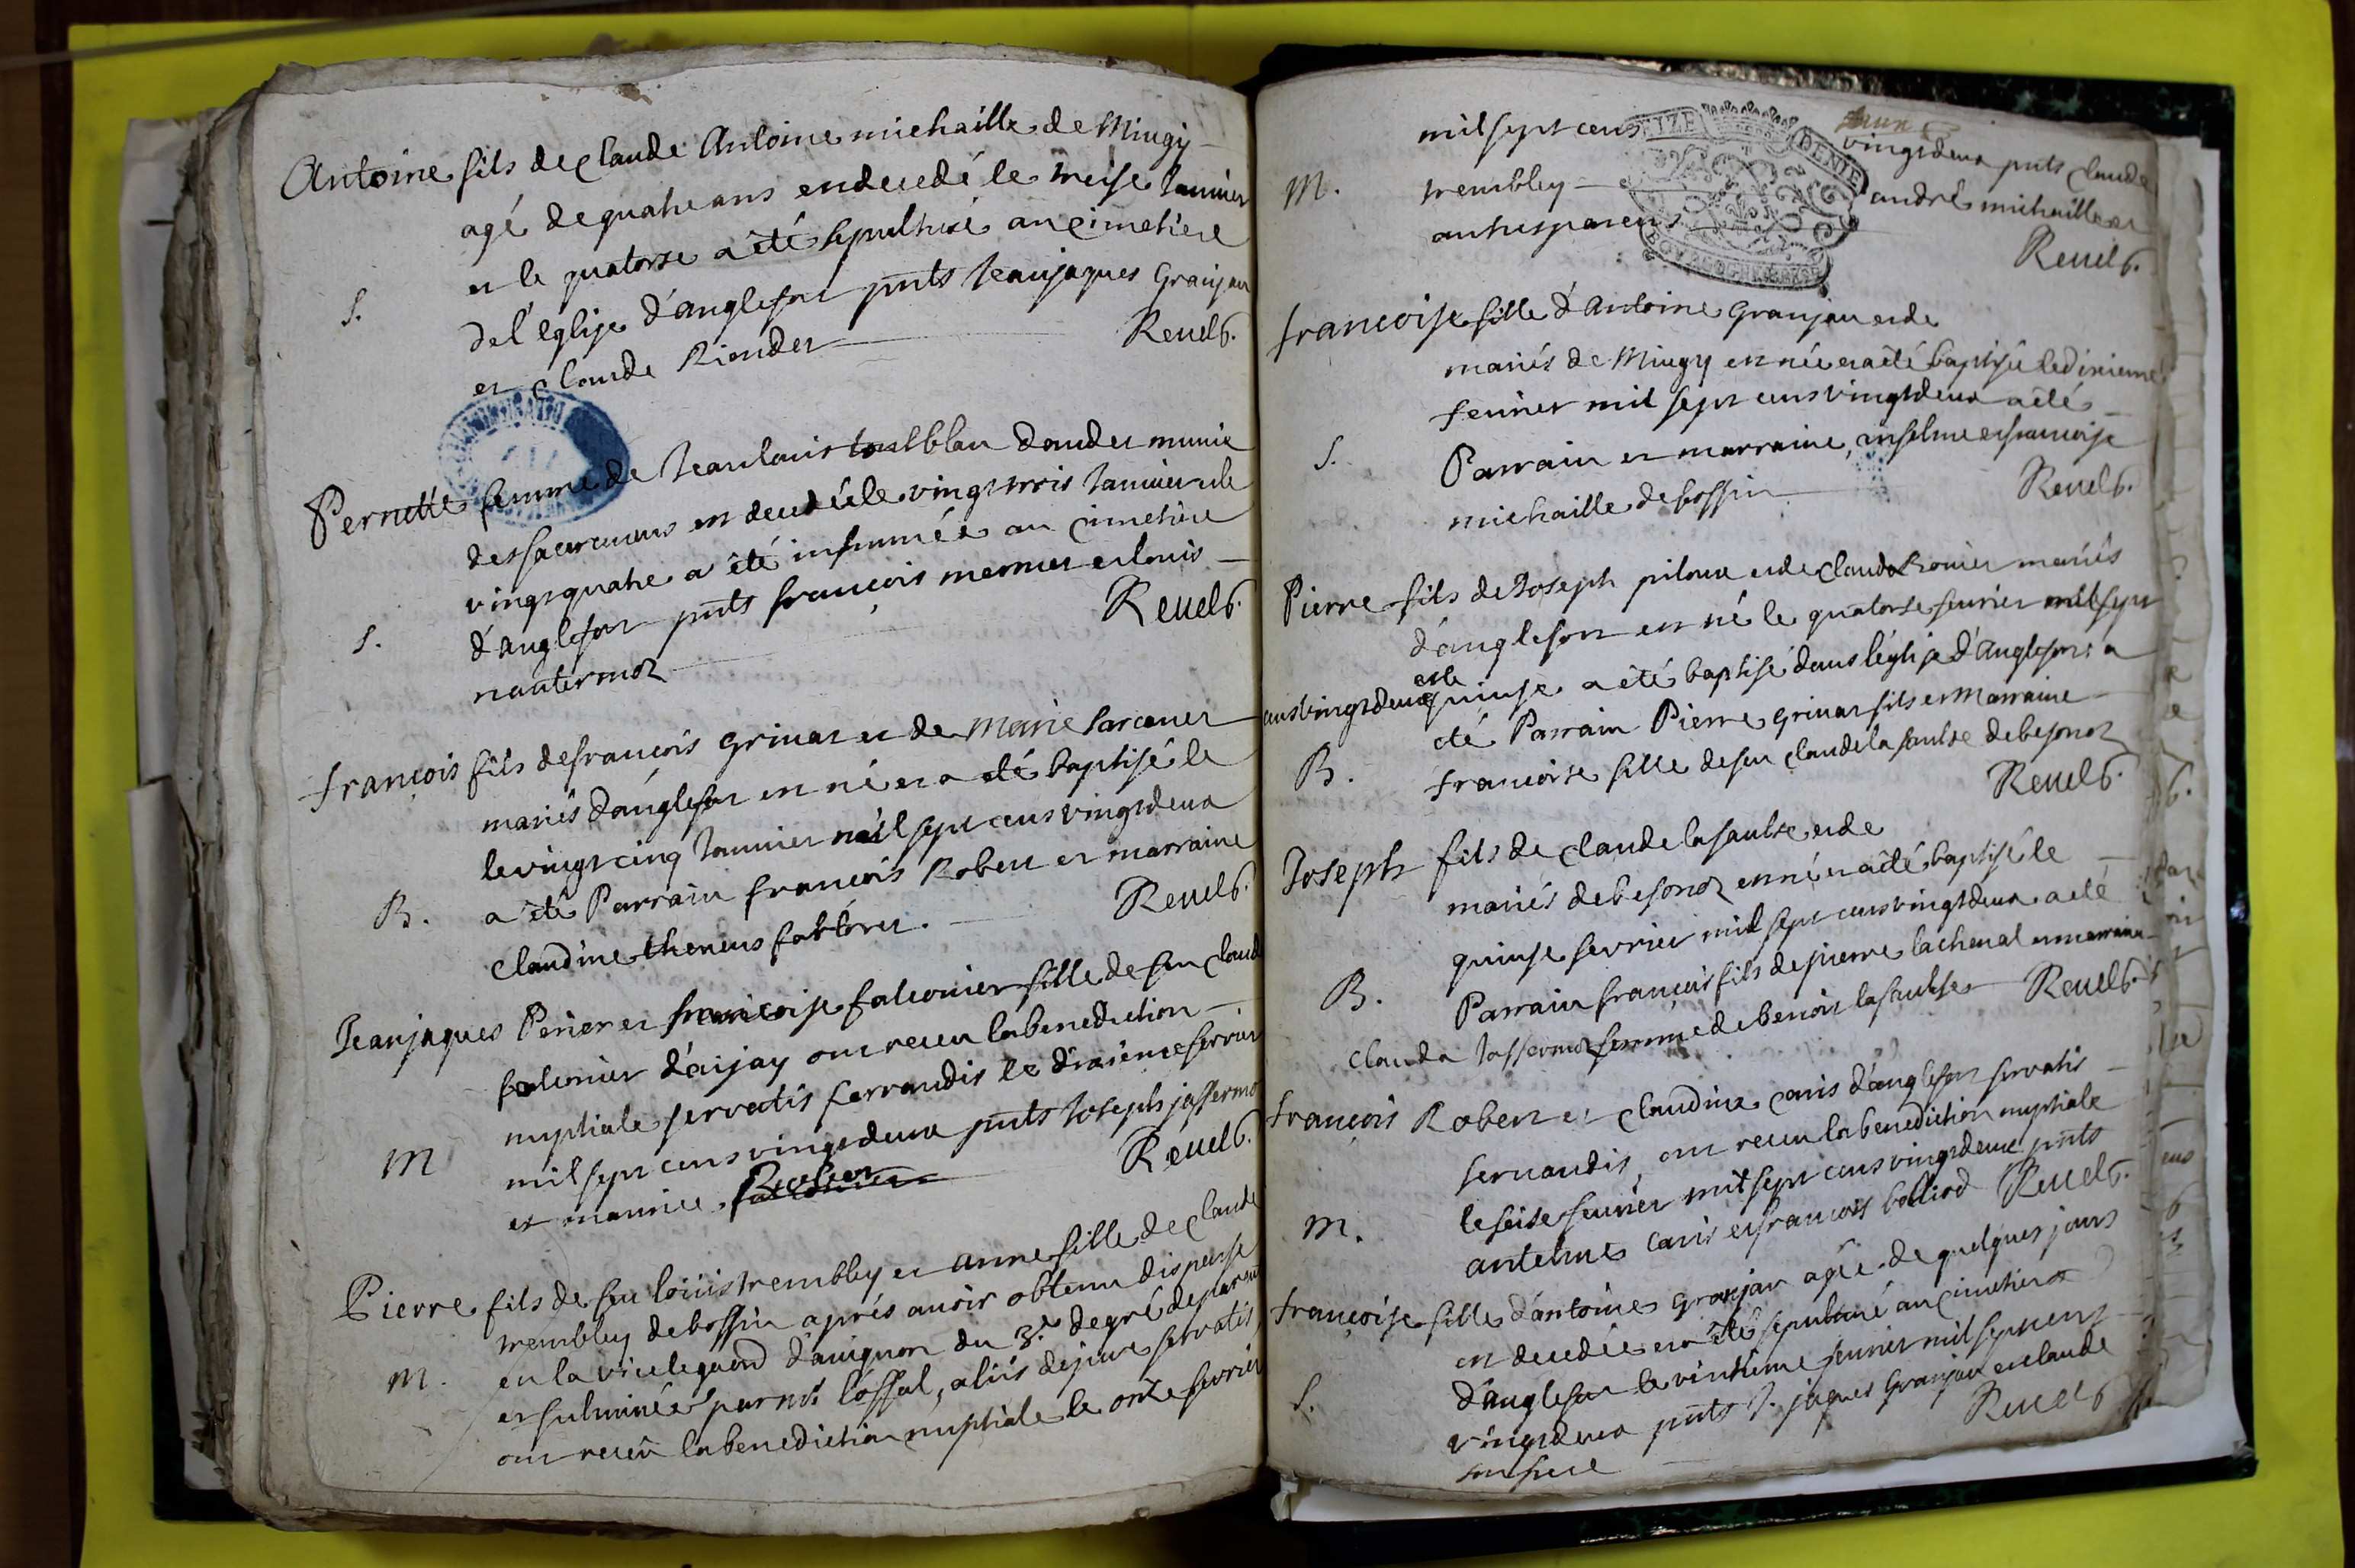 Antoine fils de Claude Antoine michaille de Mingy
agé de quatre ans est decedé le treise Janvier
et le quatorse a été sepulturé au Cimetiere
S.
de l'eglise d'anglefort pnts Jeanjaques Granjan
et Claude Riondet
Revel C.
Pernette femme de Jean louis blan daudet munie
des sacremens est decedée le vingt trois Janvier et le
vingt quatre a été inhumée au Cimetiere
S.
d'anglefort pnts françois mermet et louis
nantermoz
Revel C.
françois fils de françois grinat et de Marie
mariés d'anglefort est né et a été baptisé le
le vingt cinq Janvier mil sept cens vingt deux
B.
a été Parrain françois Robert et marraine
Claudine
Revel C.
Jeanjaques Perier et françoise falconier fille de feu Claude
falconier d'aijay ont receu la benediction
nuptiale servatis servandis le dixième fevrier
M
mil sept cens vingt deux pnts Joseph jassermo
et maurice
Revel C.
Pierre fils de feu loüis trembley et anne fille de Claude
trembley de bossin aprés avoir obtenu dispense
M.
en la vicelegaond d'avignon du 3.e degré de parent
et fulminée par mr l'offal, aliis de jure servatis
ont receu la benediction nuptiale le onze fevrier
mil sept cens
vingt deux pnts Claude
M.
trembley
andré michaille et
autres parens
Revel C.
SEIZE DENIE
francoise fille d'Antoine Granjan et de
mariés de Mingy est née et a été baptisée le dixieme
fevrier mil sept cens vingt deux a été
S.
Parrain et marraine, anselme et françoise
michaille de bossin
Revel C.
Pierre fils de Joseph piloux et de Clauda Ronier mariés
d'anglefort est né le quatorse fevrier mil sept
cens vingt deux et le quinse a été baptisé dans l'église d'Anglefort a
été Parrain Pierre grinat fils et Marraine
B.
francoise fille de feu Claude la saulse de besonoz
Revel C.
Joseph fils de Claude la saulse et de
mariés de besonoz est né et a été baptisé le
quinse fevrier mil sept cens vingt deux a été
B.
Parrain françois fils de pierre lacheval et marraine
Clauda Jassermoz femme de benoit la saulse
Revel C.
françois Robert et Claudine Caris d'anglefort servatis
servandis, ont receu la benediction nuptiale
M.
le seise fevrier mil sept cens vingt deux pnts
antelme Caris et françois balliod
Revel C.
françoise fille d'antoine Granjan agée de quelques jours
est decedée et a été sepulturé au Cimetiere
S.
d'anglefort le vintième fevrier mil sept cens
vingt deux pnts J. jaques Granjan et Claude
son frere
Revel C.